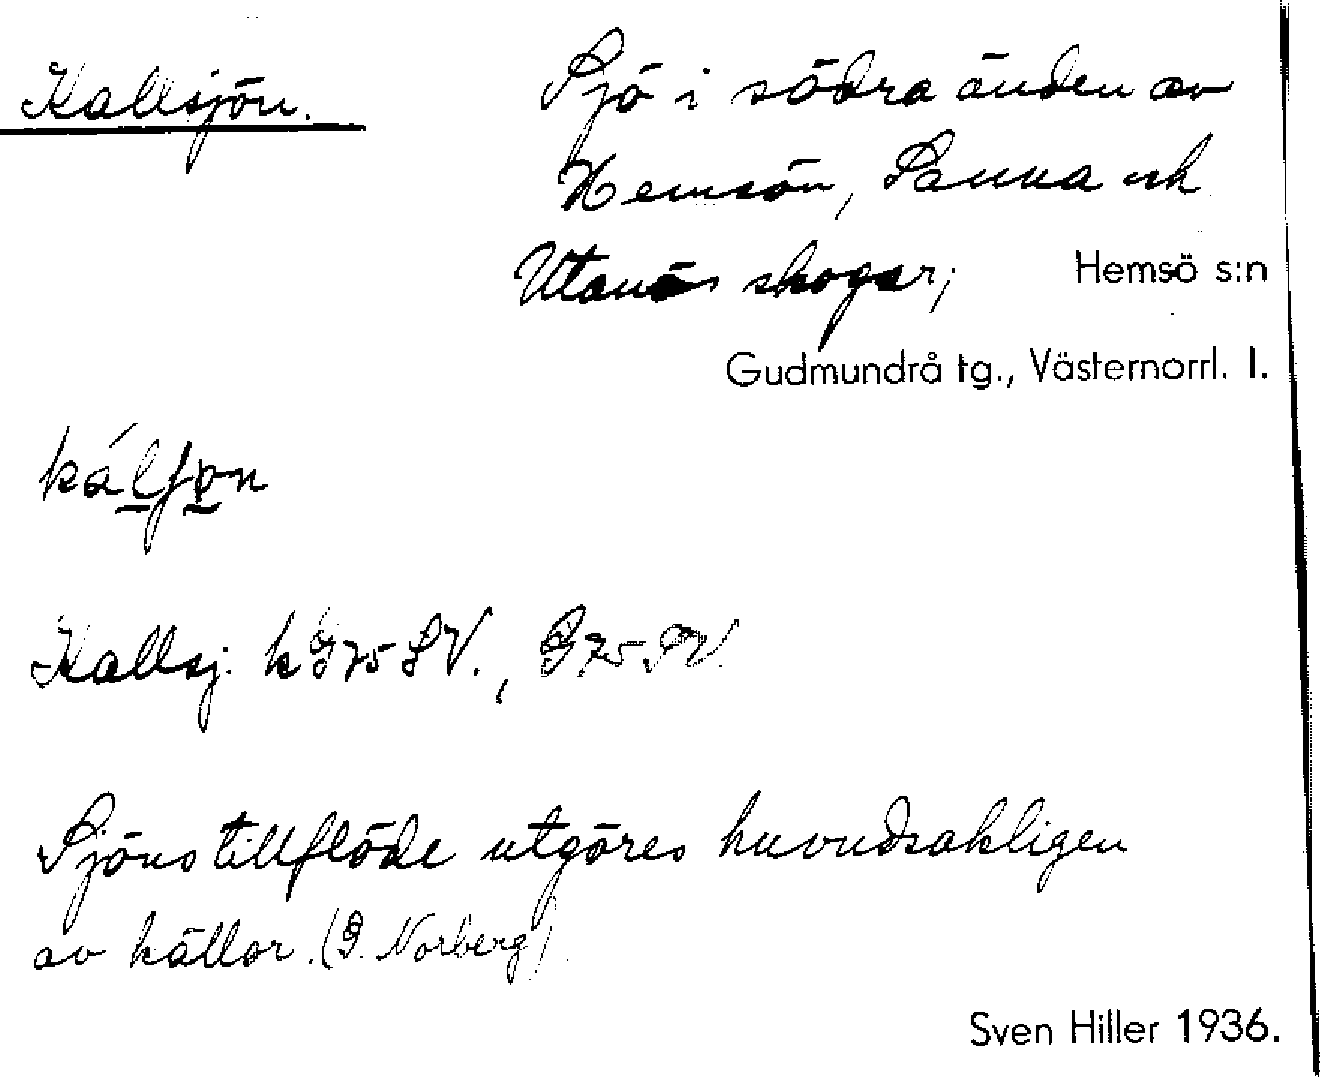 Kallsjön.
Sjö i södra änden av
Hemsön, Sanna och
Utanös skogar;
Hemsö s:n
Gudmundrå tg., Västernorrl. l.
Kallsj.
Sjöns tillflöde utgöres huvudsakligen
av källor. (G. Norberg)
Sven Hiller 1936.